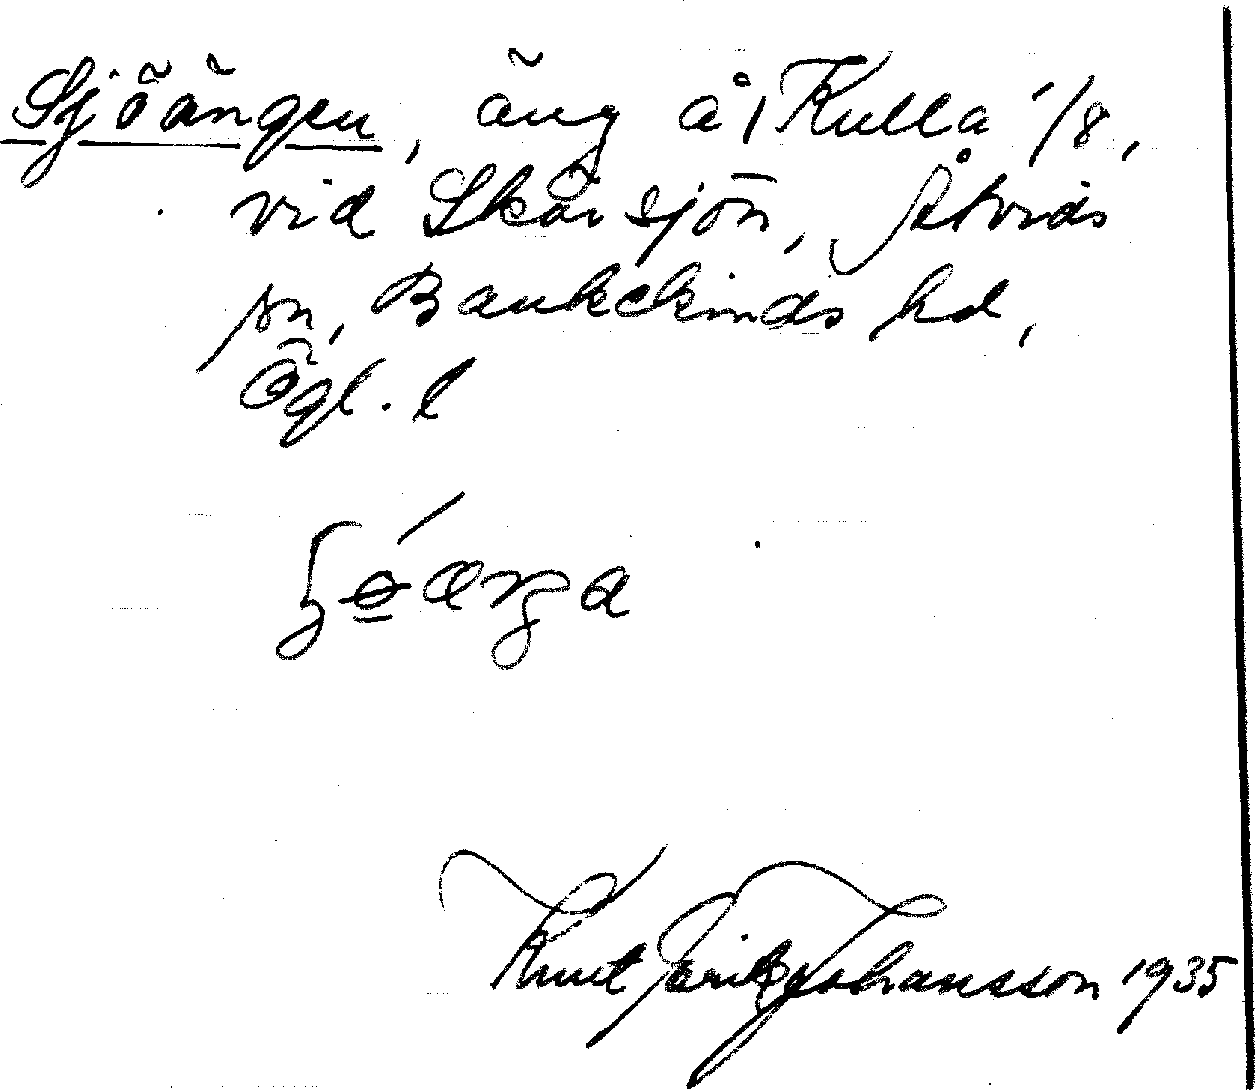 Sjöängen, äng å, Kulla 1/8,
vid Skärsjön, Åtvids
sn, Bankekinds hd,
Ögl. l
Knut Fritz Johansson 1935